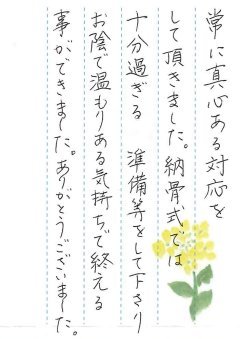 常に真心ある対応を
して頂きました。納骨式では
十分過ぎる 準備等をして下さり
お陰で温もりある気持ちで終える
事ができました。ありがとうございました。